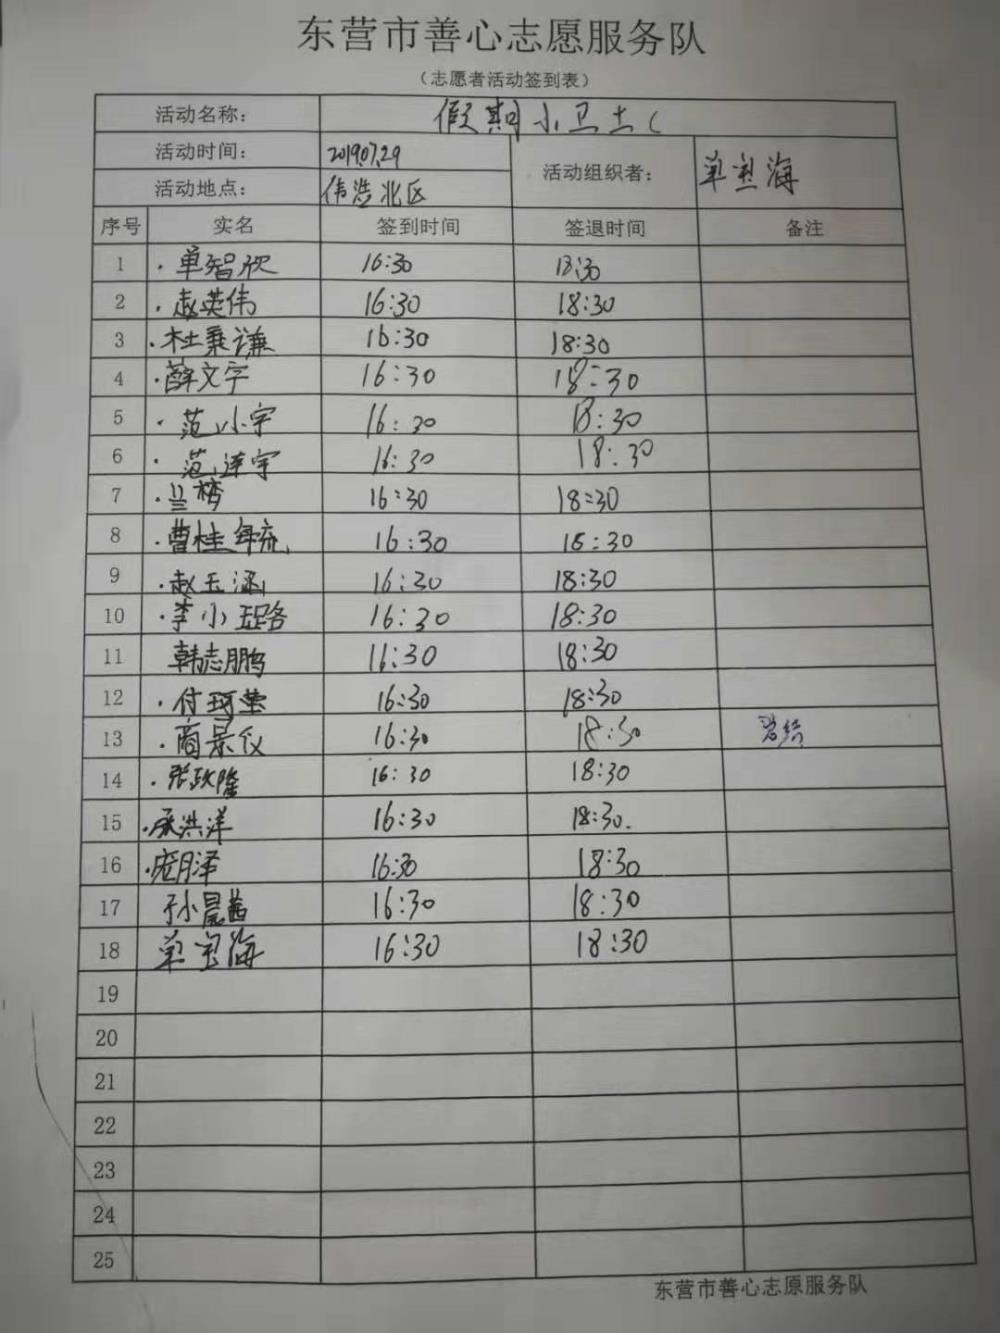 东营市善心志愿服务队
（志愿者活动签到表）
活动名称： 假期小卫士（
活动时间： 2019.07.29 活动组织者： 单宝海
活动地点： 伟浩北区
序号 实名 签到时间 签退时间 备注
1 ·单智欣 16:30 18:30
2 ·赵英伟 16:30 18:30
3 ·杜秉谦 16:30 18:30
4 ·薛文宇 16:30 18:30
5 ·范小宇 16:30 18:30
6 ·范连宇 16:30 18:30
7 ·兰梦 16:30 18:30
8 ·曹桂 16:30 18:30
9 ·赵玉涵 16:30 18:30
10 ·李小璐 16:30 18:30
11 韩志鹏 16:30 18:30
12 ·付珂莹 16:30 18:30
13 ·商景仪 16:30 18:30
14 ·张政隆 16:30 18:30
15 ·洪洋 16:30 18:30.
16 ·庞月泽 16:30 18:30
17 孙晨茜 16:30 18:30
18 单宝海 16:30 18:30
19
20
21
22
23
24
25
东营市善心志愿服务队